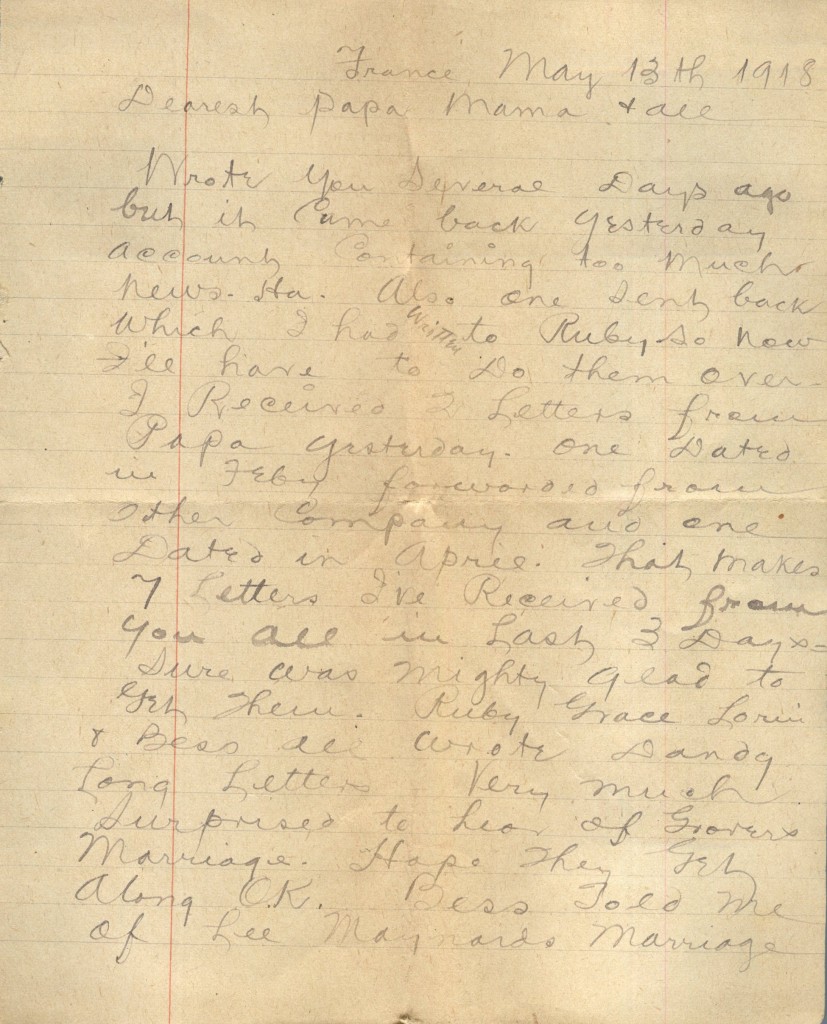 France, May 13th 1918
Dearest Papa Mama & all
Wrote you Several Days ago
but it Came back yesterday
account Containing too Much
News. Ha. Also one Sent back
Which I had Written to Ruby. So Now
I'll have to Do them over.
I Received 2 Letters from
Papa yesterday. One Dated
in Feby forwarded from
other Company and one
Dated in April. That Makes
7 Letters I've Received from
you all in Last 3 Days-
Sure was mighty glad to
Get Them. Ruby Grace Lorin
& Bess all wrote Dandy
Long Letters Very much
Surprised to hear of Grovers
Marriage. Hope They Get
Along O.K. Bess Told me
of Lee Maynards Marriage